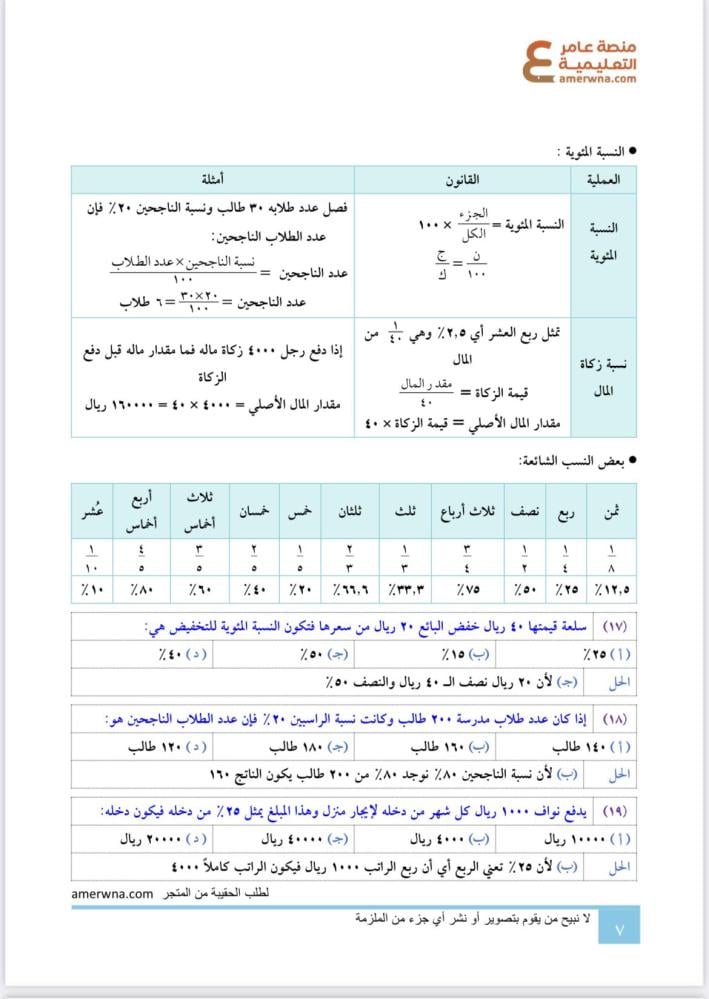 منصة عامر
التعليمية
amerwna.com
● النسبة المئوية :
العملية
القانون
أمثلة
النسبة
المئوية
النسبة المئوية = الجزء / الكل × ١٠٠
ن / ١٠٠ = ج / ك
فصل عدد طلابه ٣٠ طالب ونسبة الناجحين ٢٠٪ فإن
عدد الطلاب الناجحين:
عدد الناجحين = نسبة الناجحين×عدد الطلاب / ١٠٠
عدد الناجحين = ٢٠×٣٠ / ١٠٠ = ٦ طلاب
نسبة زكاة
المال
تمثل ربع العشر أي ٢,٥٪ وهي ١ / ٤٠ من
المال
قيمة الزكاة = مقدر المال / ٤٠
مقدار المال الأصلي = قيمة الزكاة × ٤٠
إذا دفع رجل ٤٠٠٠ زكاة ماله فما مقدار ماله قبل دفع
الزكاة
مقدار المال الأصلي = ٤٠٠٠ × ٤٠ = ١٦٠٠٠٠ ريال
● بعض النسب الشائعة:
ثمن ربع نصف ثلاث أرباع ثلث ثلثان خمس خمسان ثلاث أخماس أربع أخماس عُشر
١/٨ ١/٤ ١/٢ ٣/٤ ١/٣ ٢/٣ ١/٥ ٢/٥ ٣/٥ ٤/٥ ١/١٠
١٢,٥٪ ٢٥٪ ٥٠٪ ٧٥٪ ٣٣,٣٪ ٦٦,٦٪ ٢٠٪ ٤٠٪ ٦٠٪ ٨٠٪ ١٠٪
(١٧) سلعة قيمتها ٤٠ ريال خفض البائع ٢٠ ريال من سعرها فتكون النسبة المئوية للتخفيض هي:
(أ) ٢٥٪ (ب) ١٥٪ (جـ) ٥٠٪ (د) ٤٠٪
الحل (جـ) لأن ٢٠ ريال نصف الـ ٤٠ ريال والنصف ٥٠٪
(١٨) إذا كان عدد طلاب مدرسة ٢٠٠ طالب وكانت نسبة الراسبين ٢٠٪ فإن عدد الطلاب الناجحين هو:
(أ) ١٤٠ طالب (ب) ١٦٠ طالب (جـ) ١٨٠ طالب (د) ١٢٠ طالب
الحل (ب) لأن نسبة الناجحين ٨٠٪ نوجد ٨٠٪ من ٢٠٠ طالب يكون الناتج ١٦٠
(١٩) يدفع نواف ١٠٠٠ ريال كل شهر من دخله لإيجار منزل وهذا المبلغ يمثل ٢٥٪ من دخله فيكون دخله:
(أ) ١٠٠٠٠ ريال (ب) ٤٠٠٠ ريال (جـ) ٤٠٠٠٠ ريال (د) ٢٠٠٠٠ ريال
الحل (ب) لأن ٢٥٪ تعني الربع أي أن ربع الراتب ١٠٠٠ ريال فيكون الراتب كاملاً ٤٠٠٠
لطلب الحقيبة من المتجر amerwna.com
لا نبيح من يقوم بتصوير أو نشر أي جزء من الملزمة
٧